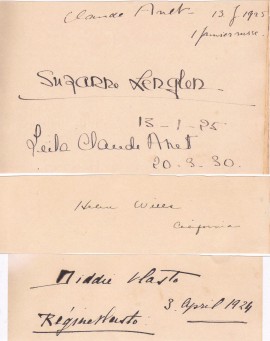 Claude Anet 13 J 1925
Suzanne Lenglen
13-1-25
Leila Claude Anet
20.3.30.
Helen Wills
California
Diddie Vlasto
3. April 1924
Régine Vlasto